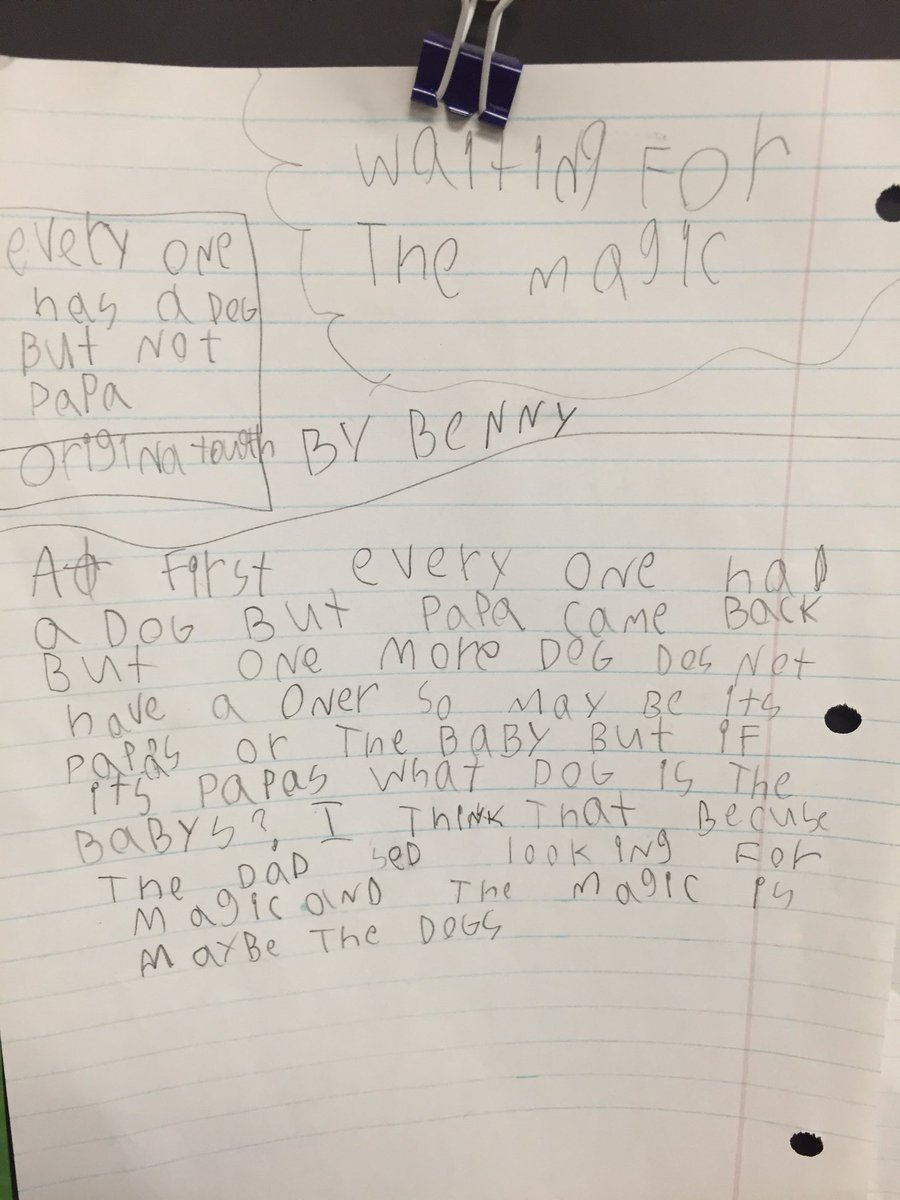 waiting For
The magic
every one
has a DOG
But Not
PaPa
BY BeNNY
At First every one had
a DOG But PaPa came Back
But one more DOG Dos Not
have a oner so may Be its
papas or The BaBy But iF
its PaPas what DOG is The
BaBys? I Think That Becuse
The DaD seD looking For
magic anD The magic is
mayBe The DOGS